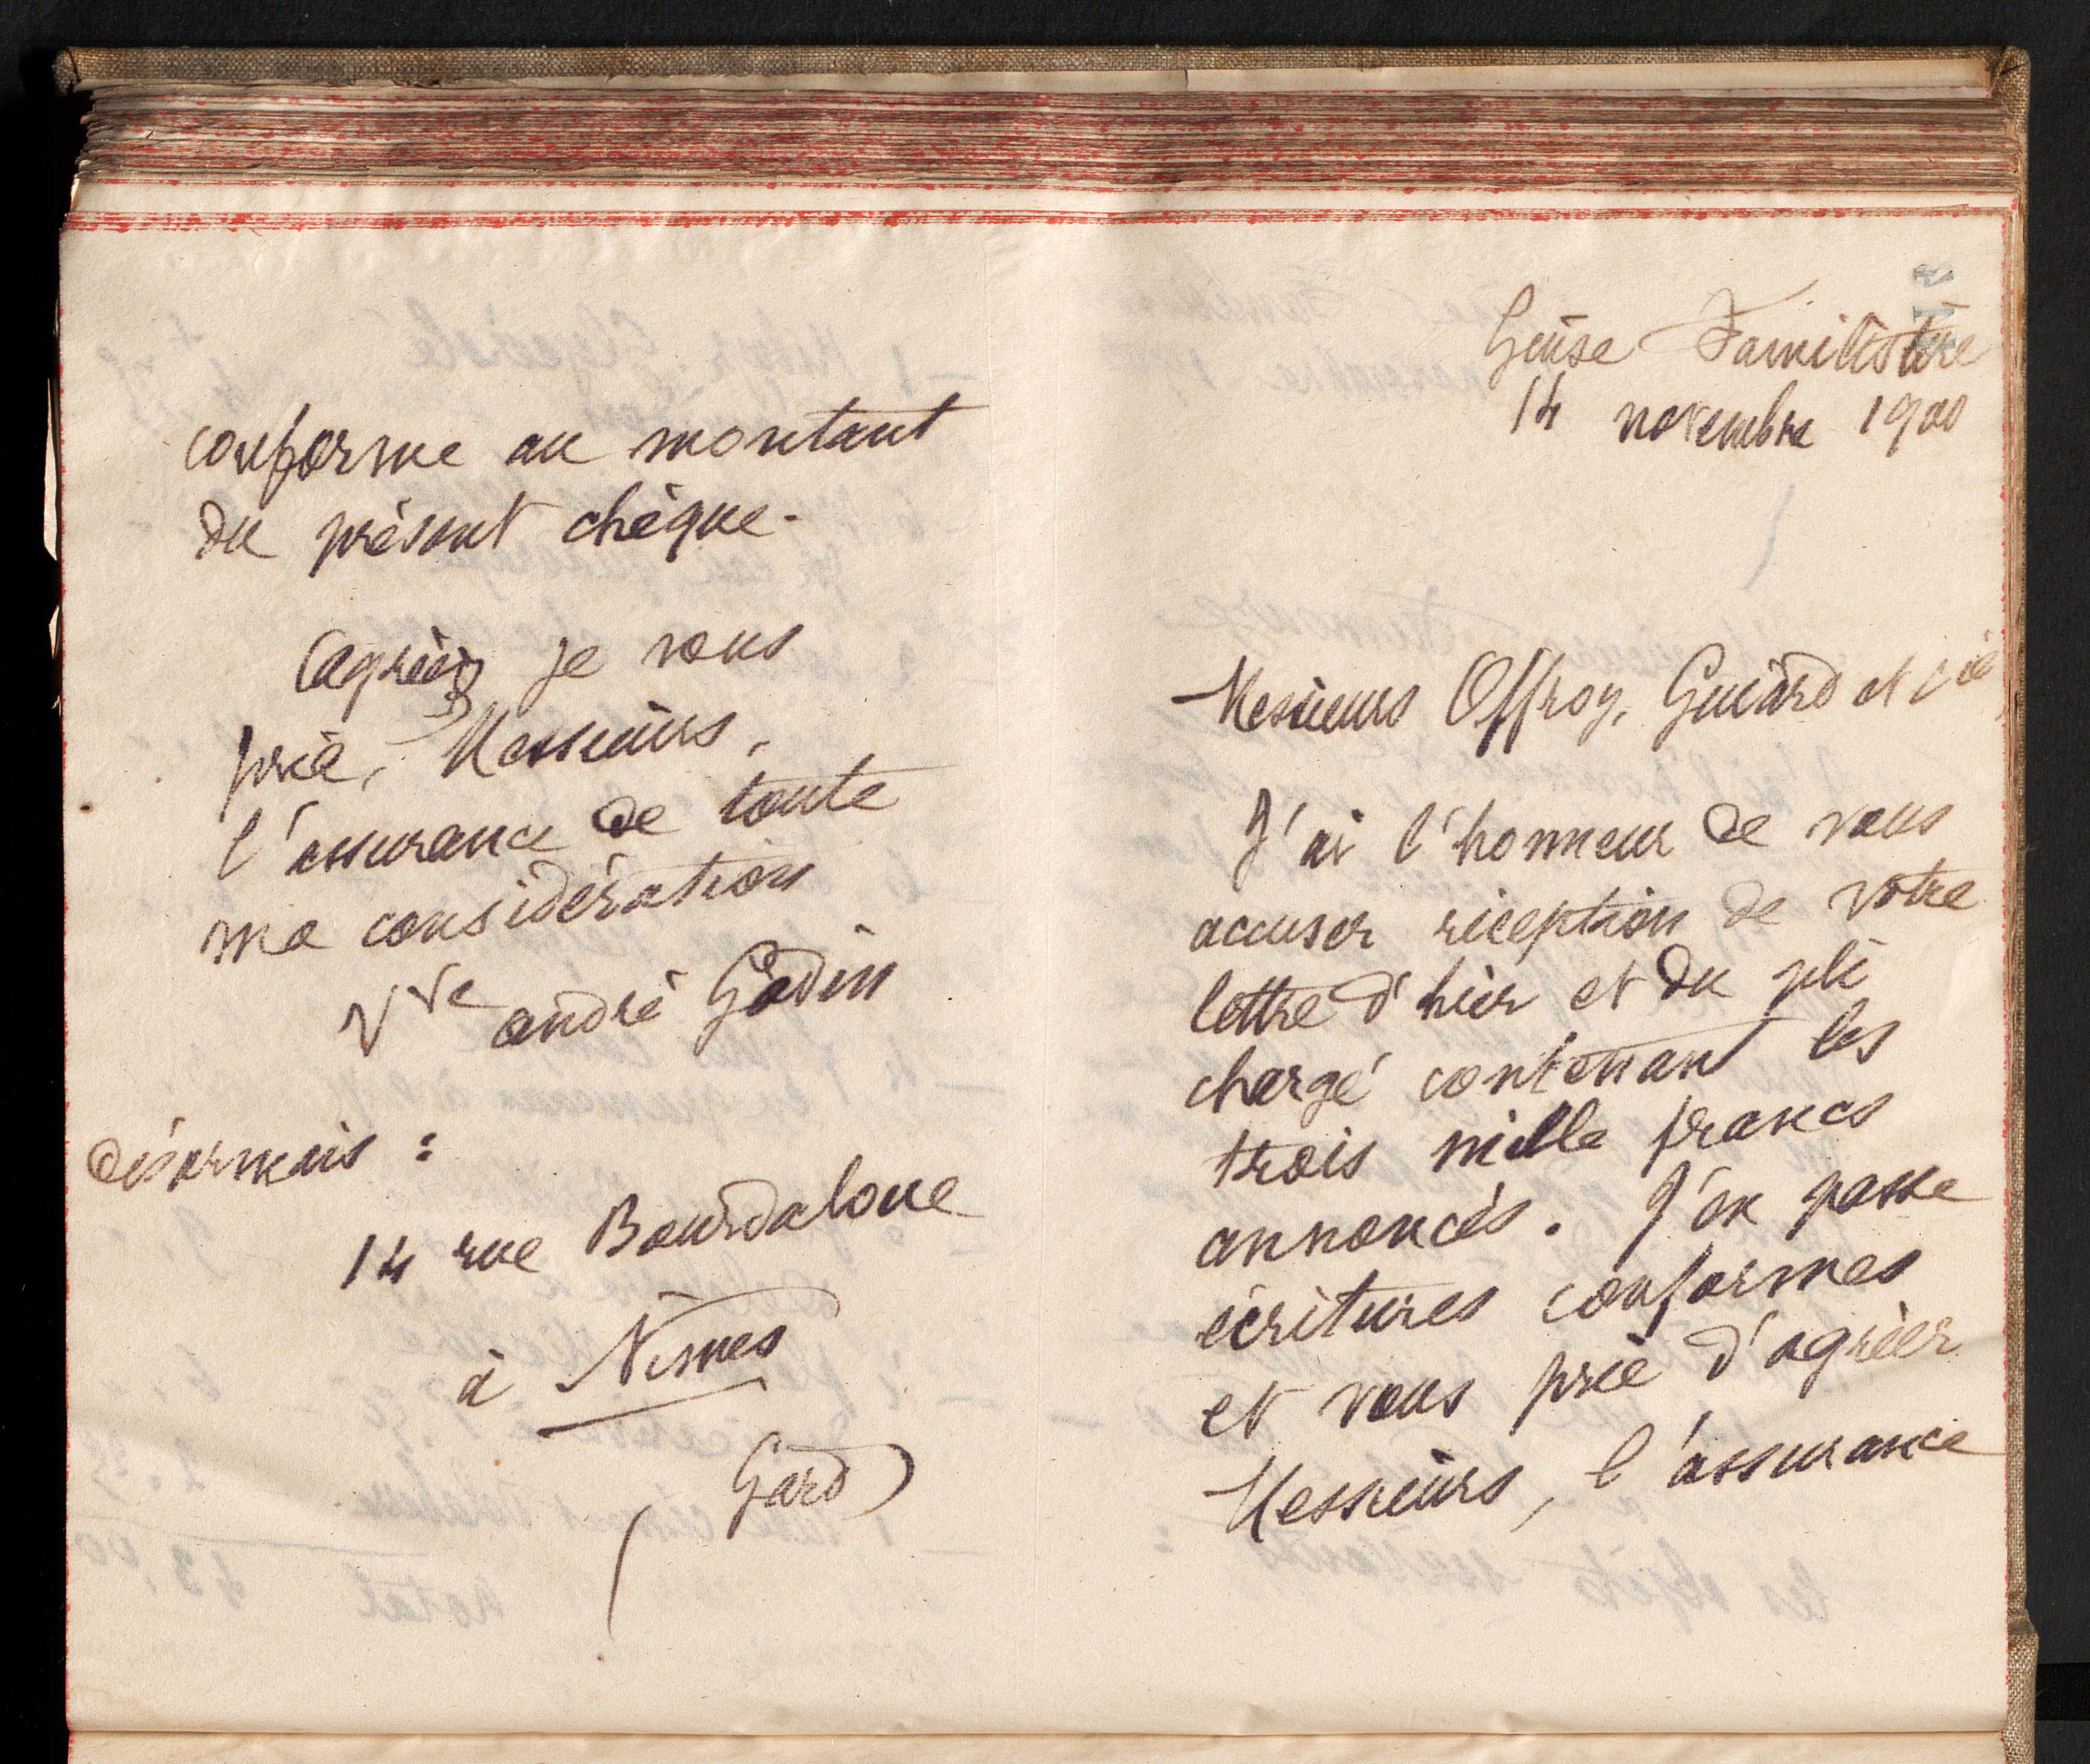 conforme au montant
du présent chèque.
agréez je vous
prie, Messieurs,
l'assurance de toute
ma considération
Vve andré Godin
désormais :
14 rue Bourdaloue
à Nimes
(Gard)
Guise Familistère
14 novembre 1900
Messieurs Offroy, Guiard et Cie
J'ai l'honneur de vous
accuser réception de votre
lettre d'hier et du pli
chargé contenant les
trois mille francs
annoncés. J'en passe
écritures conformes
et vous prie d'agréer
Messieurs, l'assurance